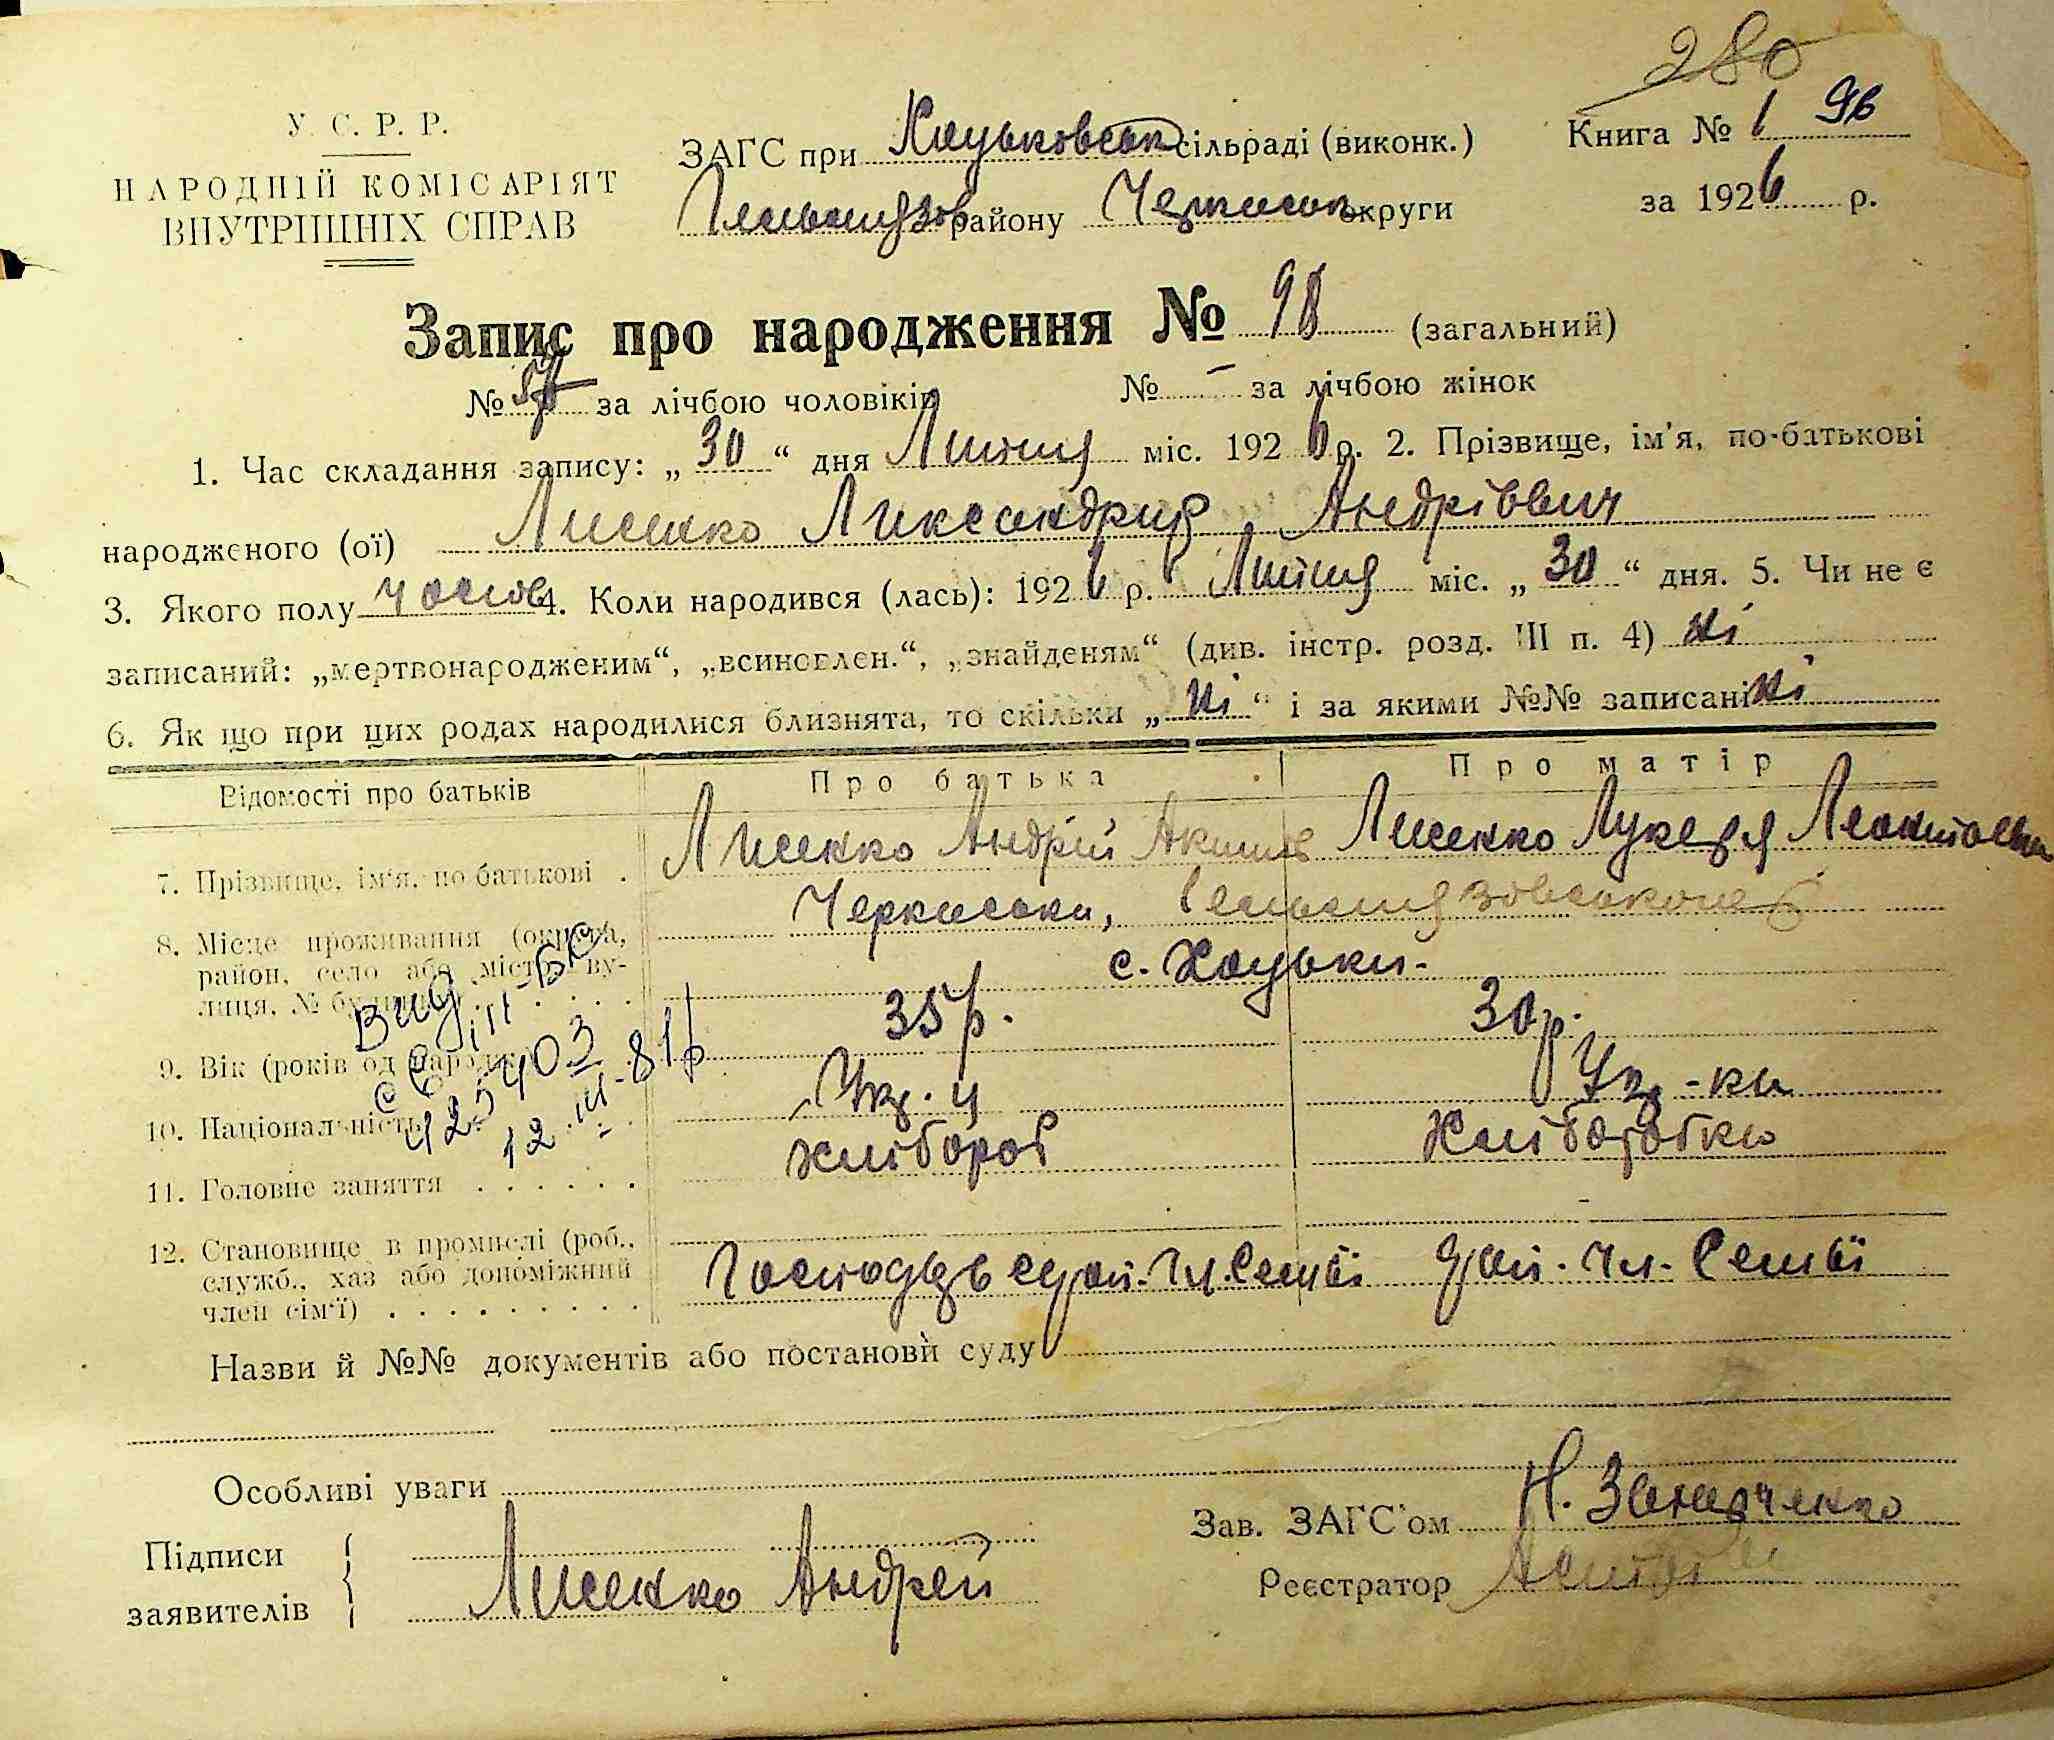 280
У. С. Р. Р.
НАРОДНІЙ КОМІСАРІЯТ
ВНУТРІШНІХ СПРАВ
ЗАГС при Хоцьковськ сільраді (виконк.)
Гельмязов району Черкаськ округи
Книга № 1 96
за 1926 р.
Запис про народження № 98 (загальний)
№ 57 за лічбою чоловіків № – за лічбою жінок
1. Час складання запису: „ 30 “ дня Липня міс. 1926 р. 2. Прізвище, ім'я, по-батькові
народженого (ої) Лисенко Андріввич
3. Якого полу чолов 4. Коли народився (лась): 1926 р. Липня міс. „ 30 “ дня. 5. Чи не є
записаний: „мертвонародженим“, „всиновлен.“, „знайденям“ (див. інстр. розд. III п. 4) ні
6. Як що при цих родах народилися близнята, то скільки „ ні “ і за якими №№ записані ні
Відомості про батьків Про батька Про матір
7. Прізвище, ім'я, по батькові . Лисенко Андрій Лисенко Лукеря
8. Місце проживання (округа, район, село або місто, вулиця, № будинку) Черкаська, Гельмязовського
с. Хоцьки-
9. Вік (років од народж.) 35р. 30р.
10. Національність Укр. ц Укр-ка
11. Головне заняття . . . . . . хлібороб Хліборобка
12. Становище в промислі (роб.,
служб., хаз або допоміжний
член сім'ї) . . . . . . . . . Господарь Чл. Семьї Чл. Семьї
Вид
425403
12.III-81р
Назви й №№ документів або постанови суду
Особливі уваги
Підписи
заявителів
Лисенко Андрей
Зав. ЗАГС'ом Н. Захарченко
Реєстратор